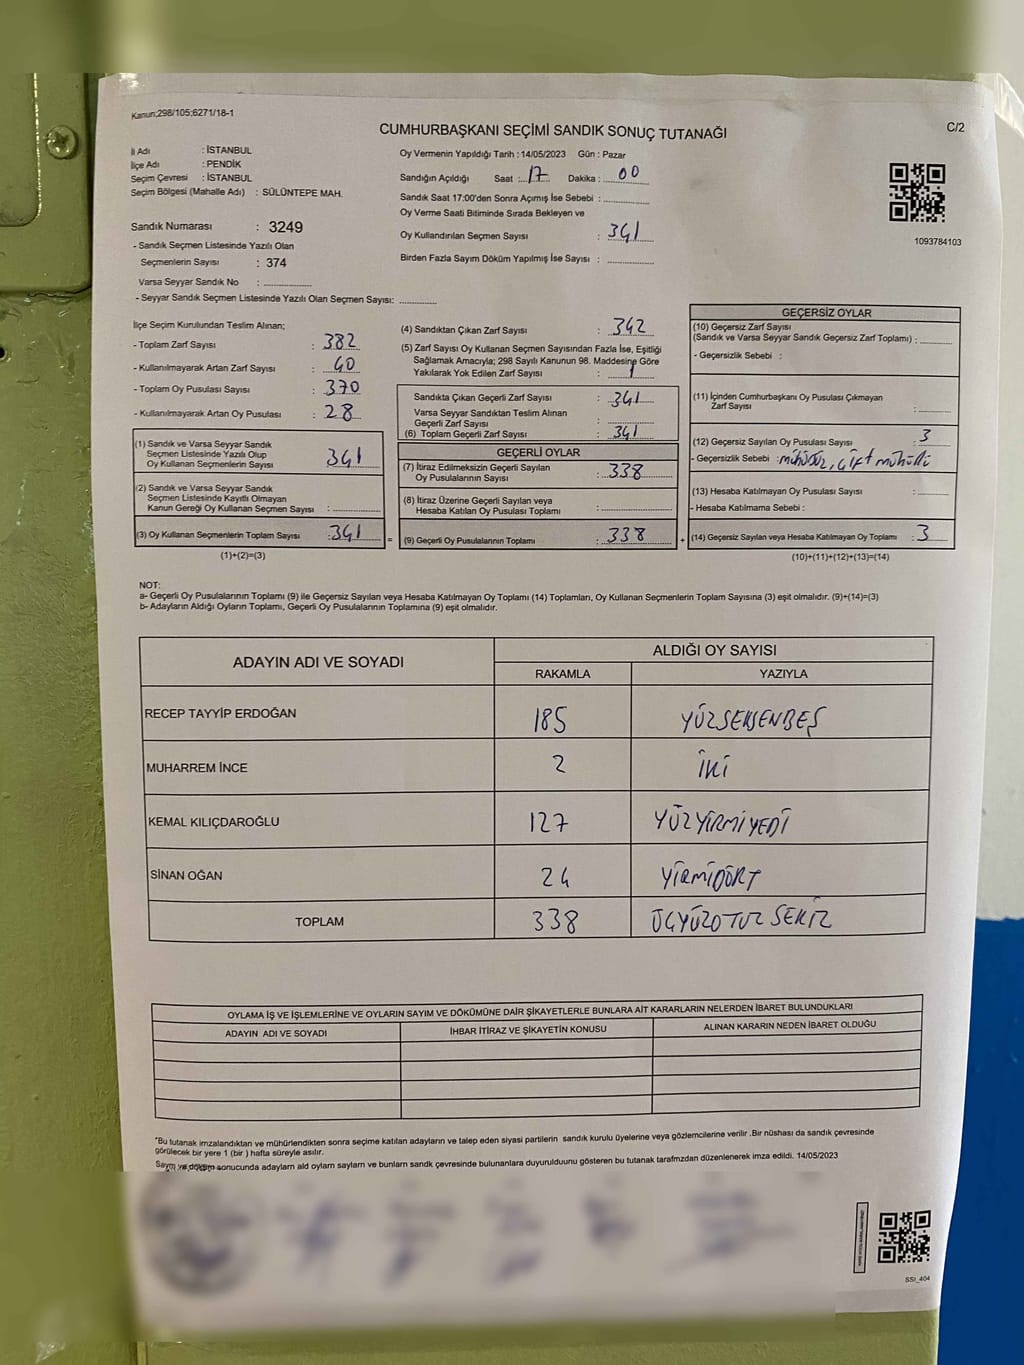 Kanun;298/105;6271/18-1
CUMHURBAŞKANI SEÇİMİ SANDIK SONUÇ TUTANAĞI
C/2
İl Adı : İSTANBUL
İlçe Adı : PENDİK
Seçim Çevresi : İSTANBUL
Seçim Bölgesi (Mahalle Adı) : SÜLÜNTEPE MAH.
Oy Vermenin Yapıldığı Tarih : 14/05/2023 Gün : Pazar
Sandığın Açıldığı Saat :..17.. Dakika :..00..
Sandık Saat 17:00'den Sonra Açımış İse Sebebi :
Oy Verme Saati Bitiminde Sırada Bekleyen ve
Oy Kullandırılan Seçmen Sayısı : 341
Birden Fazla Sayım Döküm Yapılmış İse Sayısı :
1093784103
Sandık Numarası : 3249
- Sandık Seçmen Listesinde Yazılı Olan
Seçmenlerin Sayısı : 374
Varsa Seyyar Sandık No :
- Seyyar Sandık Seçmen Listesinde Yazılı Olan Seçmen Sayısı:
İlçe Seçim Kurulundan Teslim Alınan;
- Toplam Zarf Sayısı : 382
- Kullanılmayarak Artan Zarf Sayısı : 40
- Toplam Oy Pusulası Sayısı : 370
- Kullanılmayarak Artan Oy Pusulası : 28
(1) Sandık ve Varsa Seyyar Sandık
Seçmen Listesinde Yazılı Olup
Oy Kullanan Seçmenlerin Sayısı 341
(2) Sandık ve Varsa Seyyar Sandık
Seçmen Listesinde Kayıtlı Olmayan
Kanun Gereği Oy Kullanan Seçmen Sayısı :
(3) Oy Kullanan Seçmenlerin Toplam Sayısı : 341
(1)+(2)=(3)
=
(4) Sandıktan Çıkan Zarf Sayısı : 342
(5) Zarf Sayısı Oy Kullanan Seçmen Sayısından Fazla İse, Eşitliği
Sağlamak Amacıyla; 298 Sayılı Kanunun 98. Maddesine Göre
Yakılarak Yok Edilen Zarf Sayısı : 1
Sandıkta Çıkan Geçerli Zarf Sayısı : 341
Varsa Seyyar Sandıktan Teslim Alınan
Geçerli Zarf Sayısı :
(6) Toplam Geçerli Zarf Sayısı : 341
GEÇERLİ OYLAR
(7) İtiraz Edilmeksizin Geçerli Sayılan
Oy Pusulalarının Sayısı : 338
(8) İtiraz Üzerine Geçerli Sayılan veya
Hesaba Katılan Oy Pusulası Toplamı :
(9) Geçerli Oy Pusulalarının Toplamı : 338
+
GEÇERSİZ OYLAR
(10) Geçersiz Zarf Sayısı
(Sandık ve Varsa Seyyar Sandık Geçersiz Zarf Toplamı) :
- Geçersizlik Sebebi :
(11) İçinden Cumhurbaşkanı Oy Pusulası Çıkmayan
Zarf Sayısı :
(12) Geçersiz Sayılan Oy Pusulası Sayısı : 3
- Geçersizlik Sebebi : mühürsüz, çift mühürlü
(13) Hesaba Katılmayan Oy Pusulası Sayısı :
- Hesaba Katılmama Sebebi :
(14) Geçersiz Sayılan veya Hesaba Katılmayan Oy Toplamı : 3
(10)+(11)+(12)+(13)=(14)
NOT:
a- Geçerli Oy Pusulalarının Toplamı (9) ile Geçersiz Sayılan veya Hesaba Katılmayan Oy Toplamı (14) Toplamları, Oy Kullanan Seçmenlerin Toplam Sayısına (3) eşit olmalıdır. (9)+(14)=(3)
b- Adayların Aldığı Oyların Toplamı, Geçerli Oy Pusulalarının Toplamına (9) eşit olmalıdır.
ADAYIN ADI VE SOYADI
ALDIĞI OY SAYISI
RAKAMLA YAZIYLA
RECEP TAYYİP ERDOĞAN 185 YÜZSEKSENBEŞ
MUHARREM İNCE 2 İKİ
KEMAL KILIÇDAROĞLU 127 YÜZYİRMİYEDİ
SİNAN OĞAN 24 YİRMİDÖRT
TOPLAM 338 ÜÇYÜZOTUZ SEKİZ
OYLAMA İŞ VE İŞLEMLERİNE VE OYLARIN SAYIM VE DÖKÜMÜNE DAİR ŞİKAYETLERLE BUNLARA AİT KARARLARIN NELERDEN İBARET BULUNDUKLARI
ADAYIN ADI VE SOYADI İHBAR İTİRAZ VE ŞİKAYETİN KONUSU ALINAN KARARIN NEDEN İBARET OLDUĞU
*Bu tutanak imzalandıktan ve mühürlendikten sonra seçime katılan adayların ve talep eden siyasi partilerin sandık kurulu üyelerine veya gözlemcilerine verilir .Bir nüshası da sandık çevresinde
görülecek bir yere 1 (bir ) hafta süreyle asılır.
Sayım ve döküm sonucunda adayların ald oylarn saylarn ve bunlarn sandk çevresinde bulunanlara duyurulduunu gösteren bu tutanak tarafmzdan düzenlenerek imza edildi. 14/05/2023
SSI_404